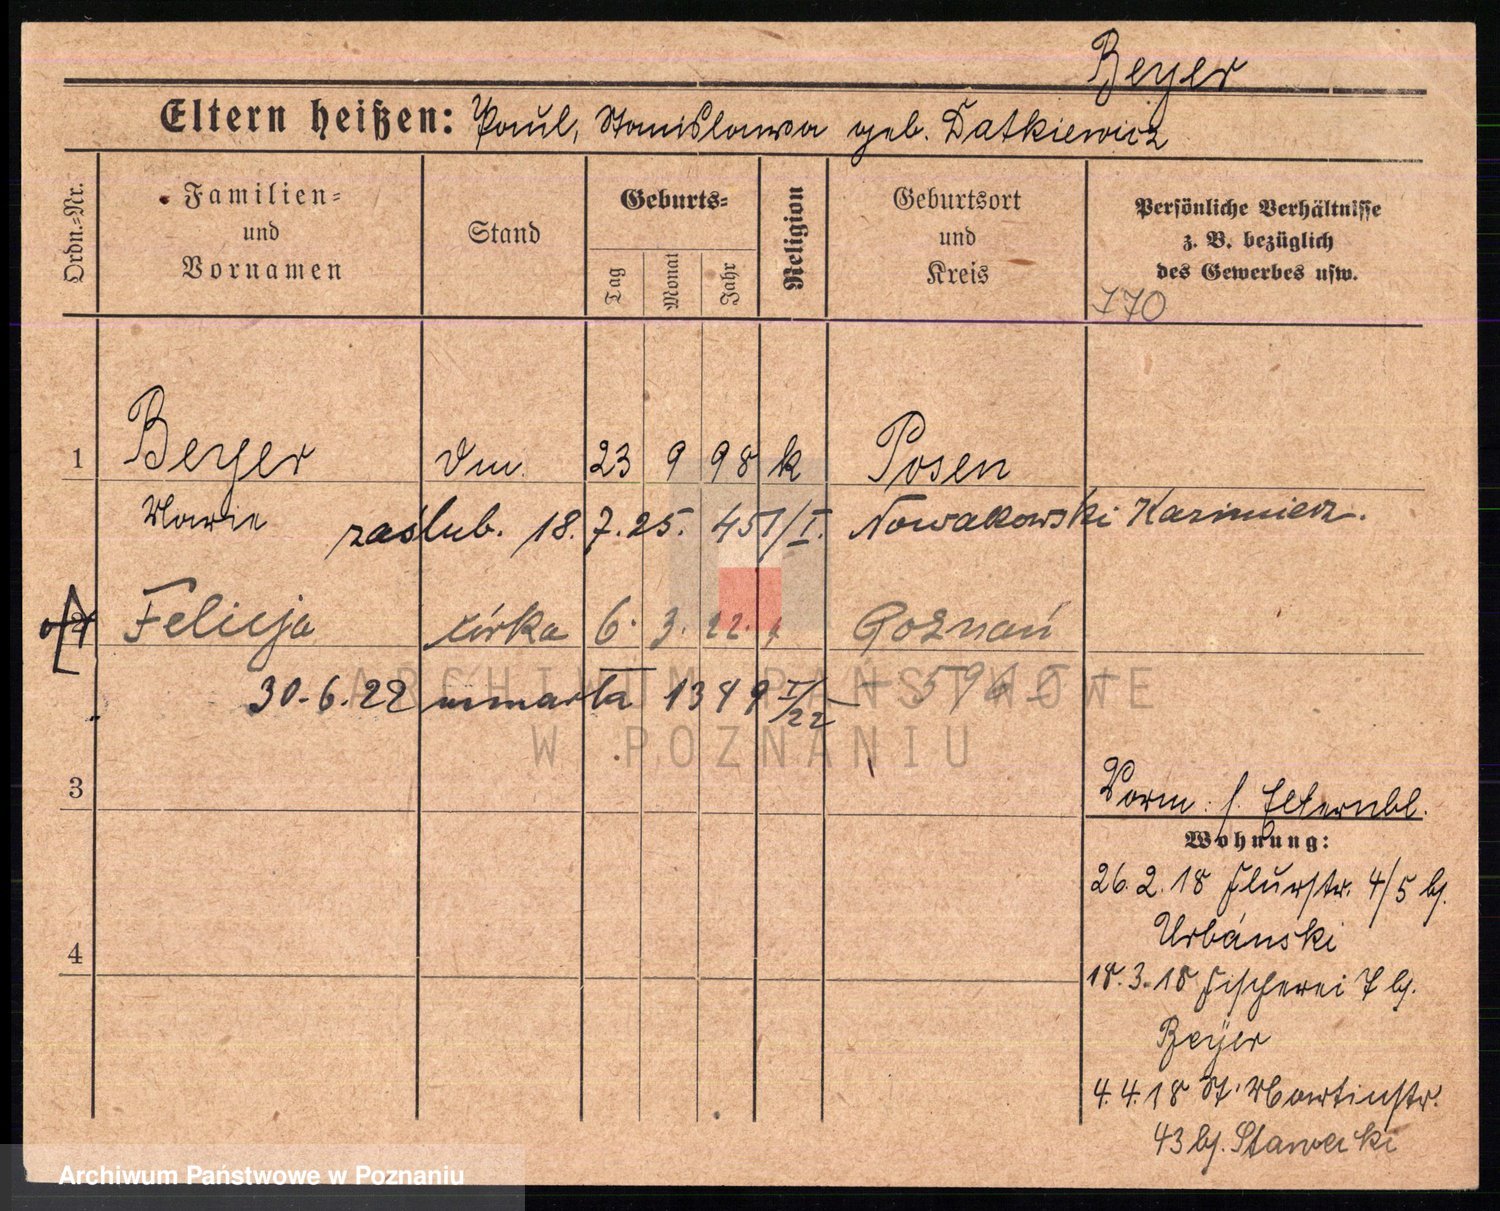 Beyer
Eltern heißen: Paul, Stanislawa geb. Datkiewicz
Ordn.-Nr.
Familien- und Vornamen
Stand
Geburts-
Tag
Monat
Jahr
Religion
Geburtsort und Kreis
Persönliche Verhältnisse
z. B. bezüglich
des Gewerbes usw.
170
1 Beyer 23 9 98 k Posen
Marie zaślub. 18.7.25. 451/I. Nowakowski Kazimierz.
2 Felicja córka 6. 3. 22. Poznań
30-6.22 umarła 1349 I/22
ARCHIWUM PAŃSTWOWE
W POZNANIU
3
Vorm. s. Elternbl.
Wohnung:
26.2.18 Flurstr. 4/5 bj.
Urbánski
4
18.3.18 Fischerei 7 bj.
Beyer
4.4.18 St. Martinstr.
43 bj. Stawecki
Archiwum Państwowe w Poznaniu